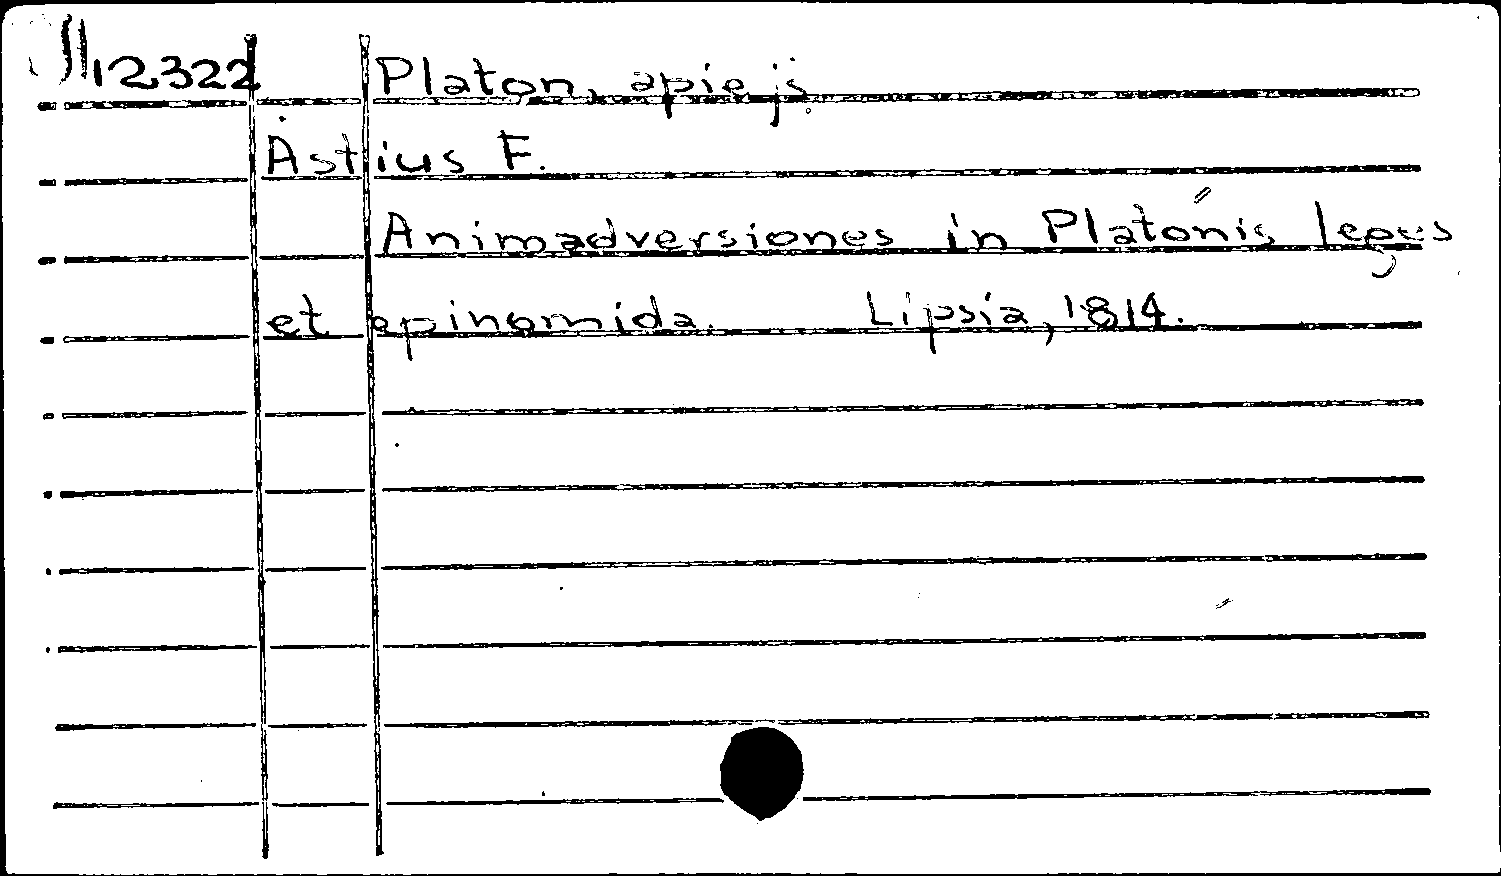 II 12322 Platon, apie jį.
Astius F.
Animadversiones in Platonis leges
et epinomida. Lipsia, 1814.